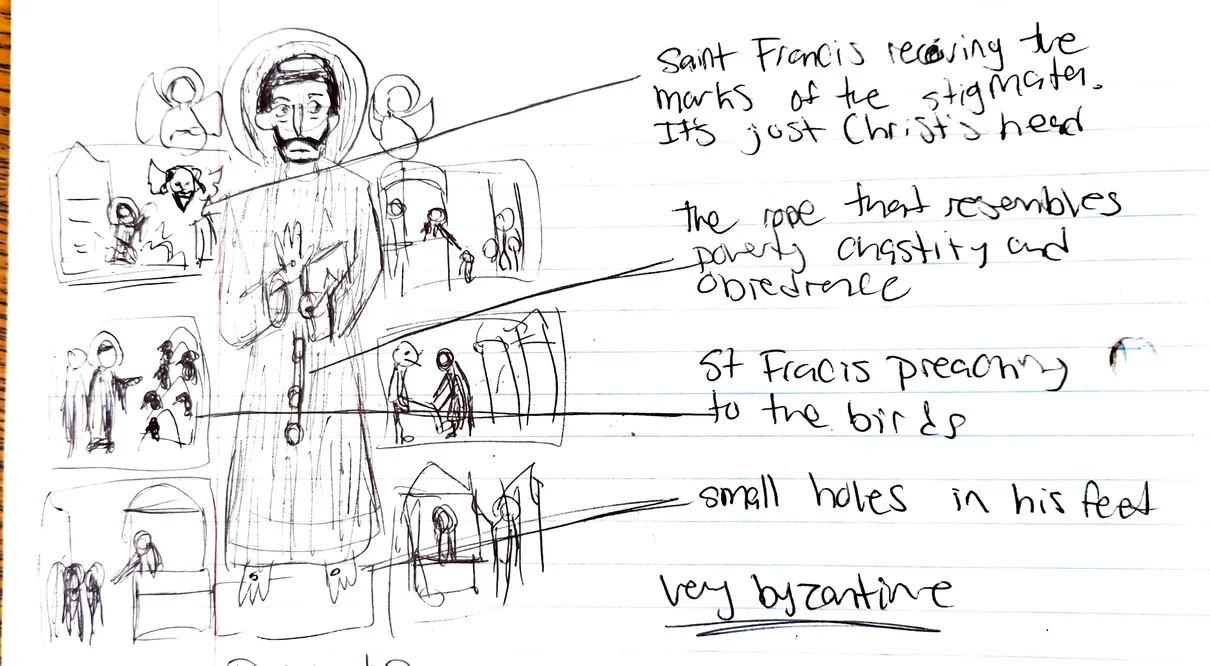 Saint Francis receiving the
marks of the stigmata.
It's just Christ's head
the rope that resembles
poverty chastity and
obiedience
St Fracis preaching
to the birds
small holes in his feet
very byzantine